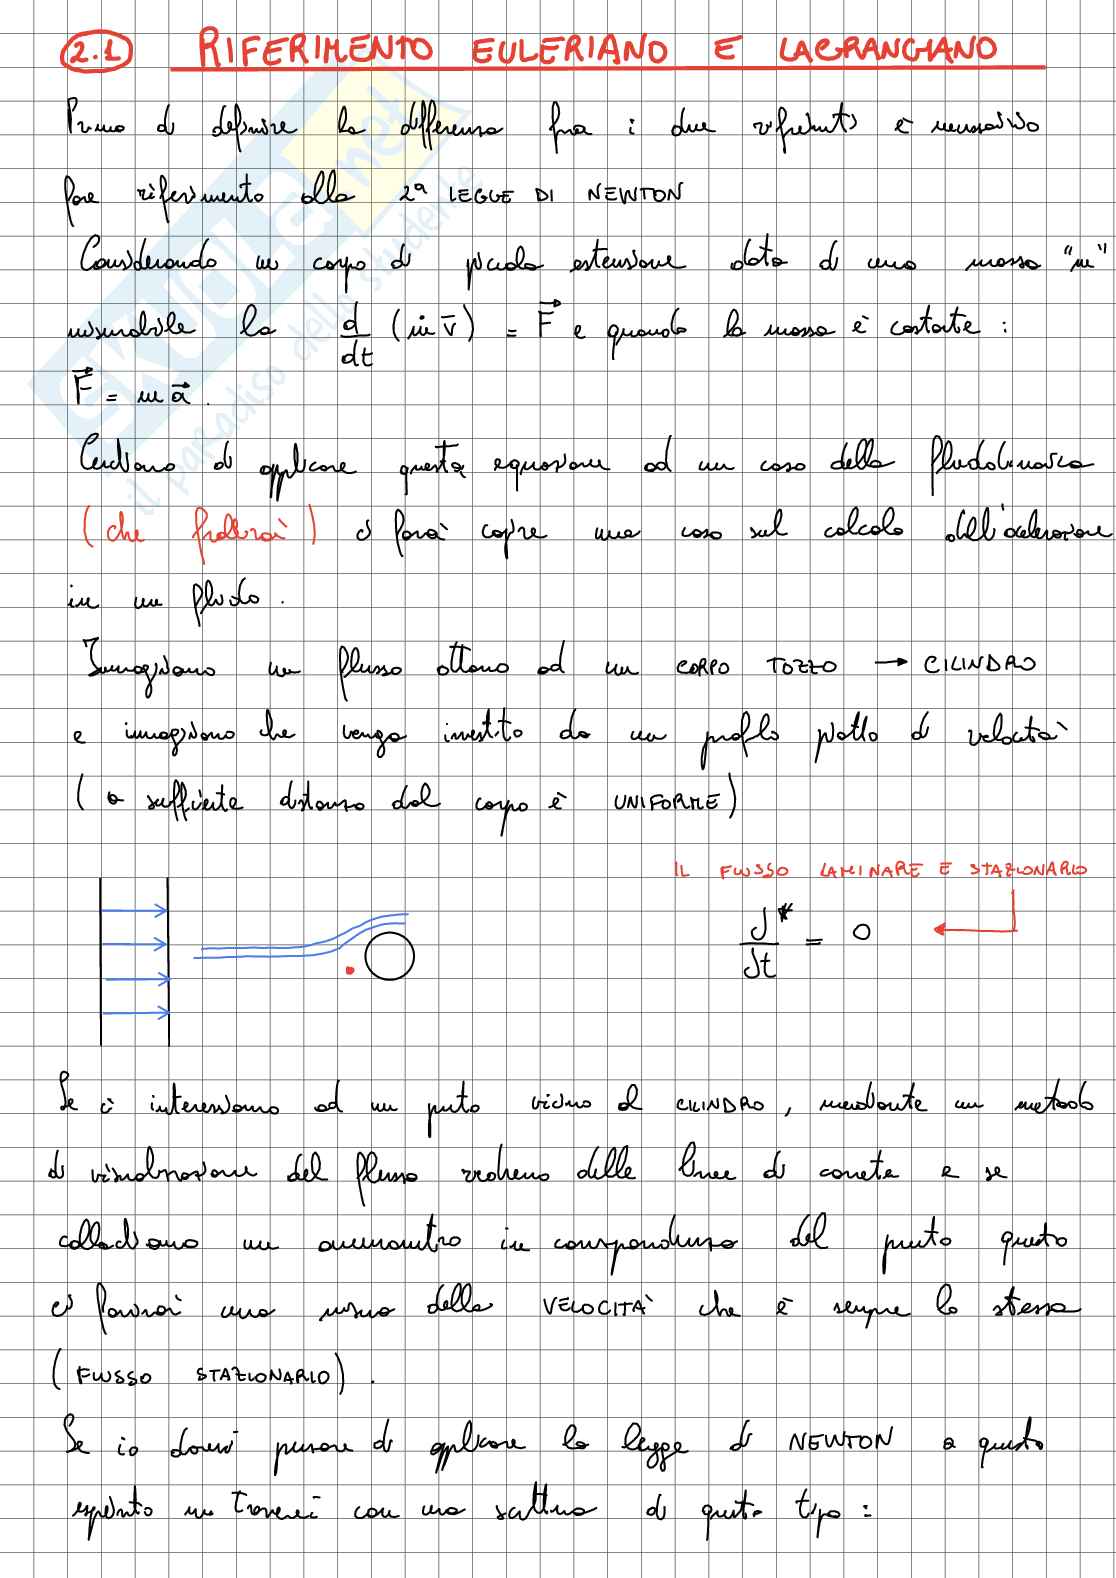 2.1 RIFERIMENTO EULERIANO E LAGRANGIANO
Prima di definire la differenza fra i due riferimenti è necessario
fare riferimento alla 2ª LEGGE DI NEWTON
Considerando un corpo di piccola estensione data di una massa "m"
misurabile la d/dt (m v̄) = F⃗ e quando la massa è costante :
F⃗ = m a⃗ .
Cerchiamo di applicare questa equazione ad un caso della fluidodinamica
(che fallirai) ci farà capire una cosa sul calcolo dell'accelerazione
in un fluido .
Immaginiamo un flusso attorno ad un CORPO TOZZO → CILINDRO
e immaginiamo che venga investito da un profilo piatto di velocità
( a sufficiente distanza dal corpo è UNIFORME )
IL FLUSSO LAMINARE E STAZIONARIO
∂*/∂t = 0
Se ci interessiamo ad un punto vicino al CILINDRO , mediante un metodo
di visualizzazione del flusso vedremo delle linee di corrente e se
collochiamo un anemometro in corrispondenza del punto questo
ci fornirà una misura della VELOCITÀ che è sempre la stessa
( FLUSSO STAZIONARIO ) .
Se io dovessi pensare di applicare la legge di NEWTON a questo
esperimento mi troverei con una scrittura di questo tipo :
SKUOLA.net
il paradiso dello studente